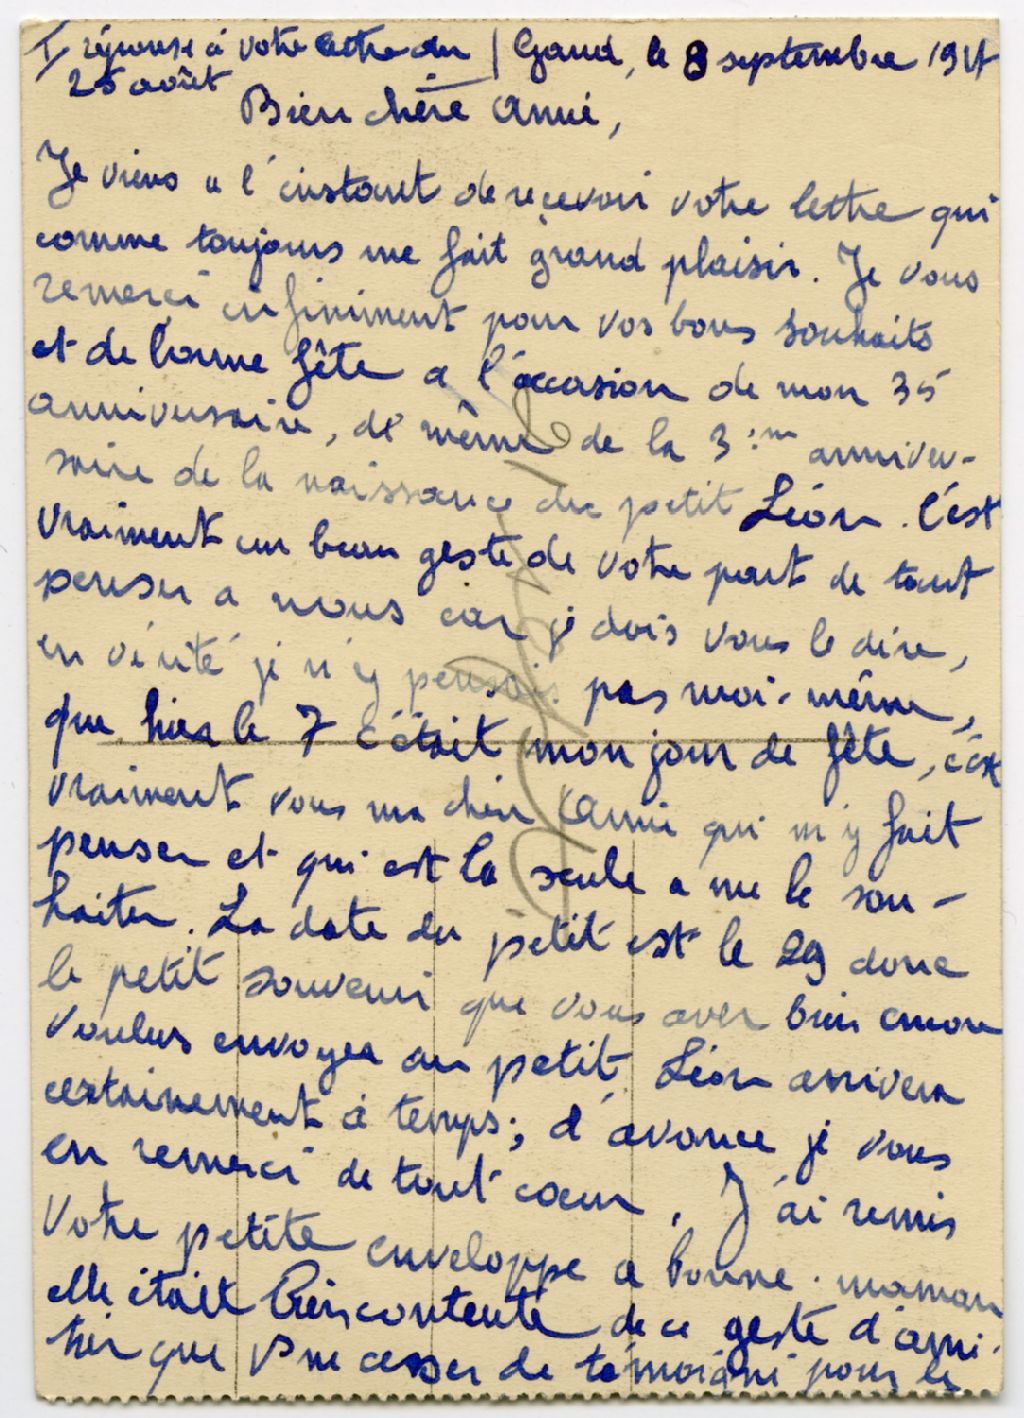 I réponse à votre lettre du | Gand, le 8 septembre 1917
25 août
Bien chère Amie,
Je viens a l'instant de reçevoir votre lettre qui
comme toujours me fait grand plaisir. Je vous
remerci infiniment pour vos bons souhaits
et de bonne fête a l'óccasion de mon 35
anniversaire, de même de la 3ième anniver-
saire de la naissance du petit Léon. C'est
vraiment un beau geste de votre part de tant
penser a nous car je dois vous le dire,
en vérité je n'y pensais pas moi-même,
que hier le 7 c'était mon jour de fête, c'est
vraiment vous ma chère Amie qui m'y fait
penser et qui est la seule a me le sou-
haiter. La date du petit est le 29 donc
le petit souvenir que vous avez bien encore
voulus envoyer au petit Léon arrivera
certainement à temps; d'avance je vous
en remerci de tout coeur. J'ai remis
votre petite enveloppe a bonne-maman
elle était bien contente de ce geste d'ami-
tier que ne cesser de témoigni pour le